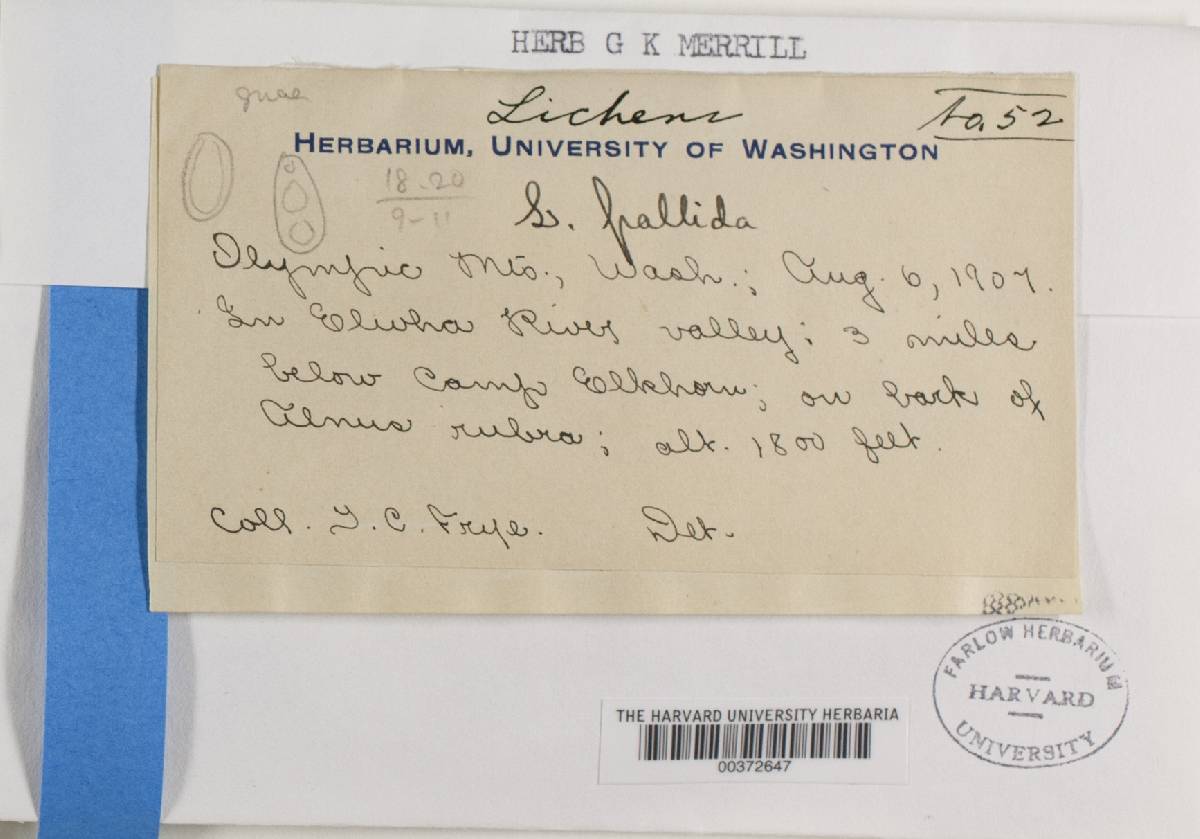 HERB G K MERRILL
Lichens
No. 52
HERBARIUM, UNIVERSITY OF WASHINGTON
18-20
9-11
L. pallida
Olympic Mts., Wash.; Aug. 6, 1907.
In Elwha River valley; 3 miles
below Camp Elkhorn; on bark of
Alnus rubra; alt. 1800 feet.
Coll. T. C. Frye. Det.
FARLOW HERBARIUM
HARVARD
UNIVERSITY
THE HARVARD UNIVERSITY HERBARIA
00372647